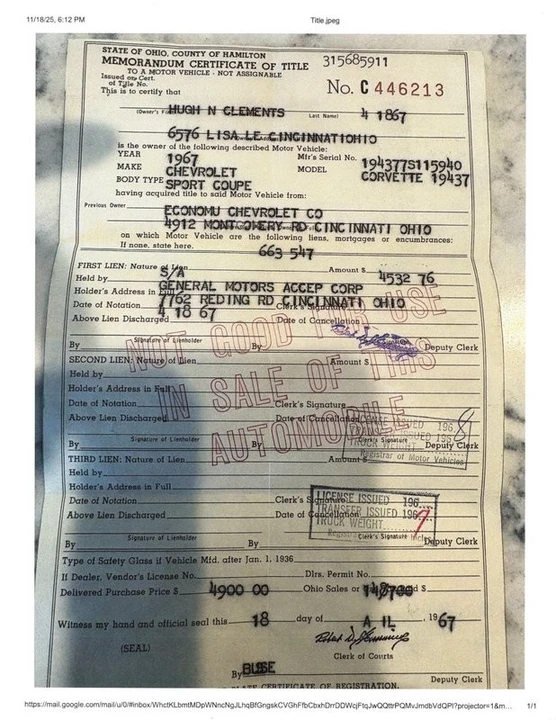 11/18/25, 6:12 PM
Title.jpeg
STATE OF OHIO, COUNTY OF HAMILTON
MEMORANDUM CERTIFICATE OF TITLE
TO A MOTOR VEHICLE - NOT ASSIGNABLE
315685911
Issued on Cert.
of Title No.
This is to certify that
No. C 446213
HUGH N CLEMENTS
Last Name)
4 1867
6576 LISA LE CINCINNATIOHIO
is the owner of the following described Motor Vehicle:
YEAR 1967
Mfr's Serial No. 194377S115940
MAKE CHEVROLET
MODEL CORVETTE 19437
BODY TYPE SPORT COUPE
having acquired title to said Motor Vehicle from:
Previous Owner
ECONOMU CHEVROLET CO
4912 MONTGOMERY RD CINCINNATI OHIO
on which Motor Vehicle are the following liens, mortgages or encumbrances:
If none, state here.
663 547
FIRST LIEN: Nature of Lien S/A
Amount $ 4532 76
Held by GENERAL MOTORS ACCEP CORP
Holder's Address in Full 7762 REDING RD CINCINNATI OHIO
Date of Notation 4 18 67
Clerk's Signature
Above Lien Discharged
Date of Cancellation
Signature of Lienholder
By
By
Deputy Clerk
NOT GOOD FOR USE
IN SALE OF THIS
AUTOMOBILE
SECOND LIEN: Nature of Lien
Amount $
Held by
Holder's Address in Full
Date of Notation
Clerk's Signature
Above Lien Discharged
Date of Cancellation
Signature of Lienholder
Clerk's Signature
By
By
Deputy Clerk
Registrar of Motor Vehicles
THIRD LIEN: Nature of Lien
Amount $
Held by
Holder's Address in Full
Date of Notation
Clerk's Signature
Above Lien Discharged
Date of Cancellation
LICENSE ISSUED 196
TRANSFER ISSUED 1967
TRUCK WEIGHT
Signature of Lienholder
Clerk's Signature
By
By
Deputy Clerk
Type of Safety Glass if Vehicle Mfd. after Jan. 1, 1936
If Dealer, Vendor's License No.
Dlrs. Permit No.
Delivered Purchase Price $ 4900 00
Ohio Sales or
Witness my hand and official seal this 18 day of A IL, 1967
(SEAL)
Clerk of Courts
By BUSE
Deputy Clerk
1/1